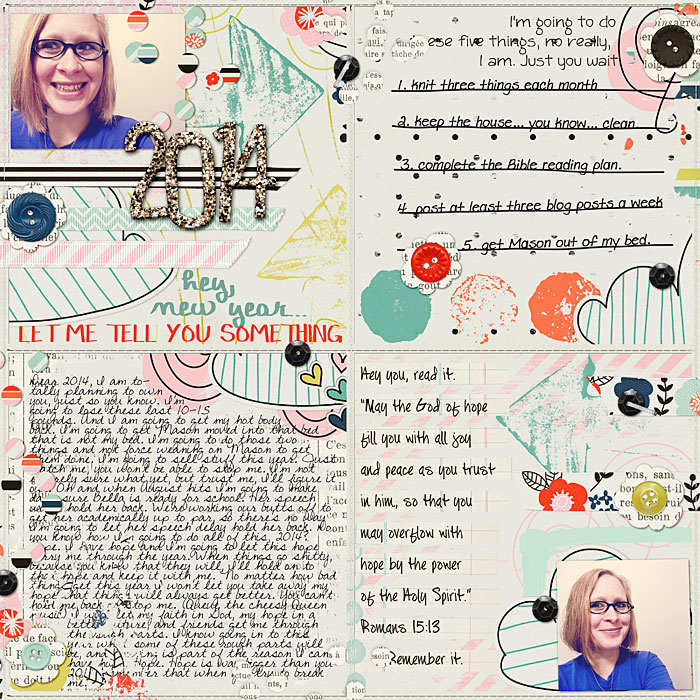 2014
hey,
new year...
LET ME TELL YOU SOMETHING
I'm going to do
these five things, no really,
I am. Just you wait.
1. knit three things each month
2. keep the house... you know... clean
3. complete the Bible reading plan.
4. post at least three blog posts a week
5. get Mason out of my bed.
Dear 2014, I am to-
tally planning to own
you, just so you know. I'm
going to lose these last 10-15
pounds. And I am going to get my hot body
back. I'm going to get Mason moved into that bed
that is not my bed. I'm going to do those two
things and not force weaning on Mason to get
them done. I'm going to sell stuff this year. Just
watch me, you won't be able to stop me. I'm not
entirely sure what yet, but trust me, I'll figure it
out. Oh and when August hits I'm going to make
sure Bella is ready for school. Her speech
won't hold her back. We're working our butts off to
get her academically up to par, so there's no way
I'm going to let her speech delay hold her back. Now
you know how I'm going to do all of this, 2014?
Hope. I have hope and I'm going to let this hope
carry me through the year. When things go shitty,
because you know that they will, I'll hold on to
this hope and keep it with me. No matter how bad
things get this year I won't let you take away my
hope that things will always get better. You can't
hold me back or stop me. (Queue the cheesy Queen
music) I let my faith in God, my hope in a
better future, and friends get me through
the rough parts. I know going in to this
year with some of these rough parts will
be, and is part of the reason I can
have hope. Hope. Hope is way bigger than you
2014, remember that when you trying to break
me.
Hey you, read it.
"May the God of hope
fill you with all joy
and peace as you trust
in him, so that you
may overflow with
hope by the power
of the Holy Spirit."
Romans 15:13
Remember it.